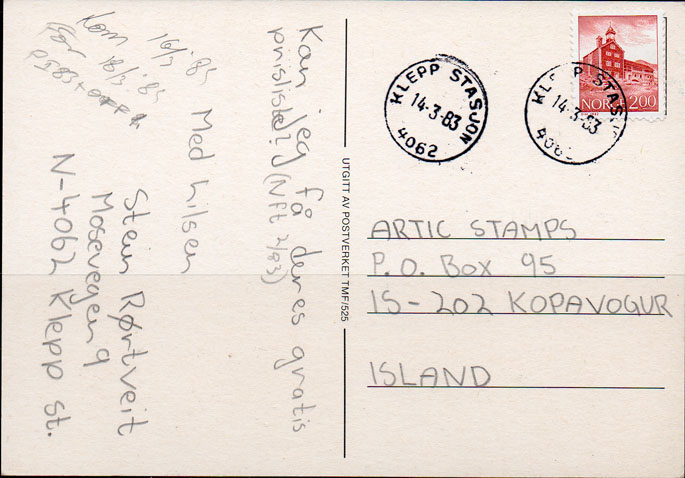 Kan jeg få deres gratis
prisliste? (NFT 2/83)
Med hilsen
Stein Rørtveit
Mosevegen 9
N-4062 Klepp st.
Kom 16/3 '83
For 18/3 '83
UTGITT AV POSTVERKET TMF/525
KLEPP STASJON
14-3-83
4062
KLEPP STASJ
14-3-83
406
NORGE 2.00
ARTIC STAMPS
P.O. Box 95
IS-202 KOPAVOGUR
ISLAND